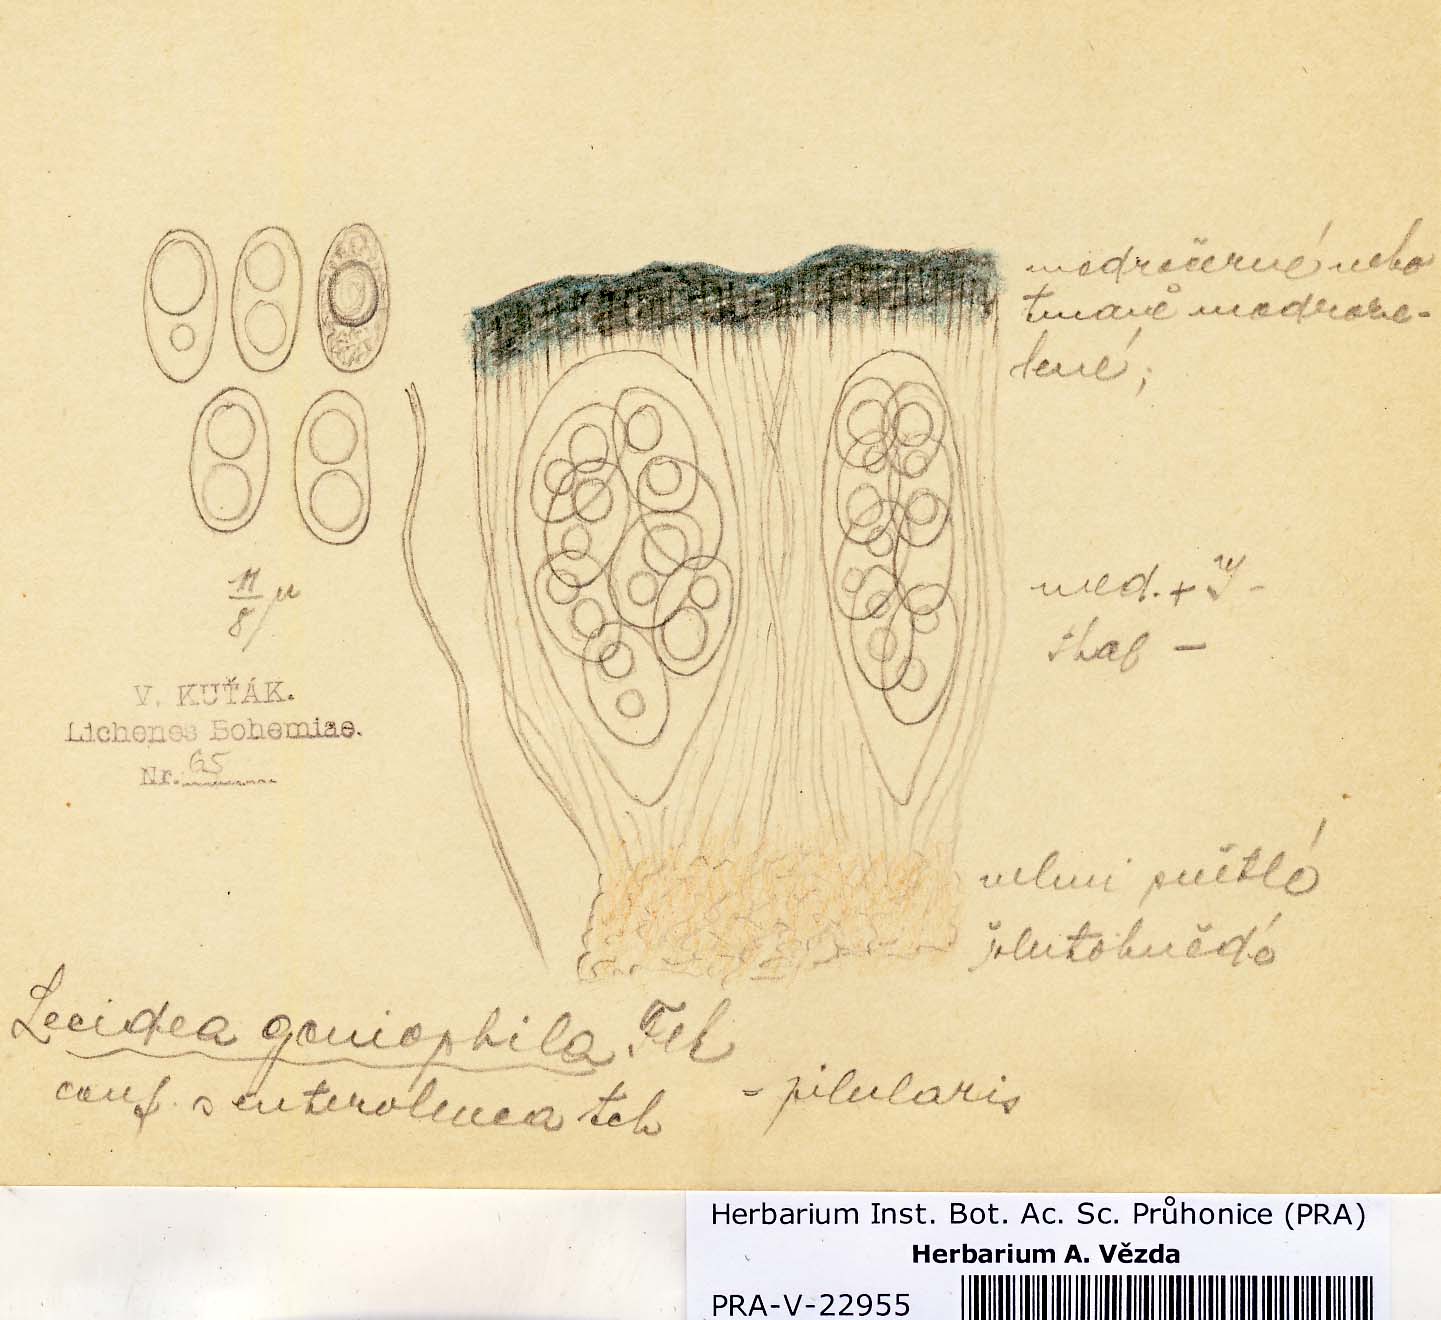 modročerné nebo
tmavě modroze-
lené;
med. + J -
velmi světlé
žlutohnědé
11/8 μ
V. KUŤÁK.
Lichenes Bohemiae.
Nr. 65
Lecidea goniophila
conf. enteroleuca
- pilularis
Herbarium Inst. Bot. Ac. Sc. Průhonice (PRA)
Herbarium A. Vězda
PRA-V-22955